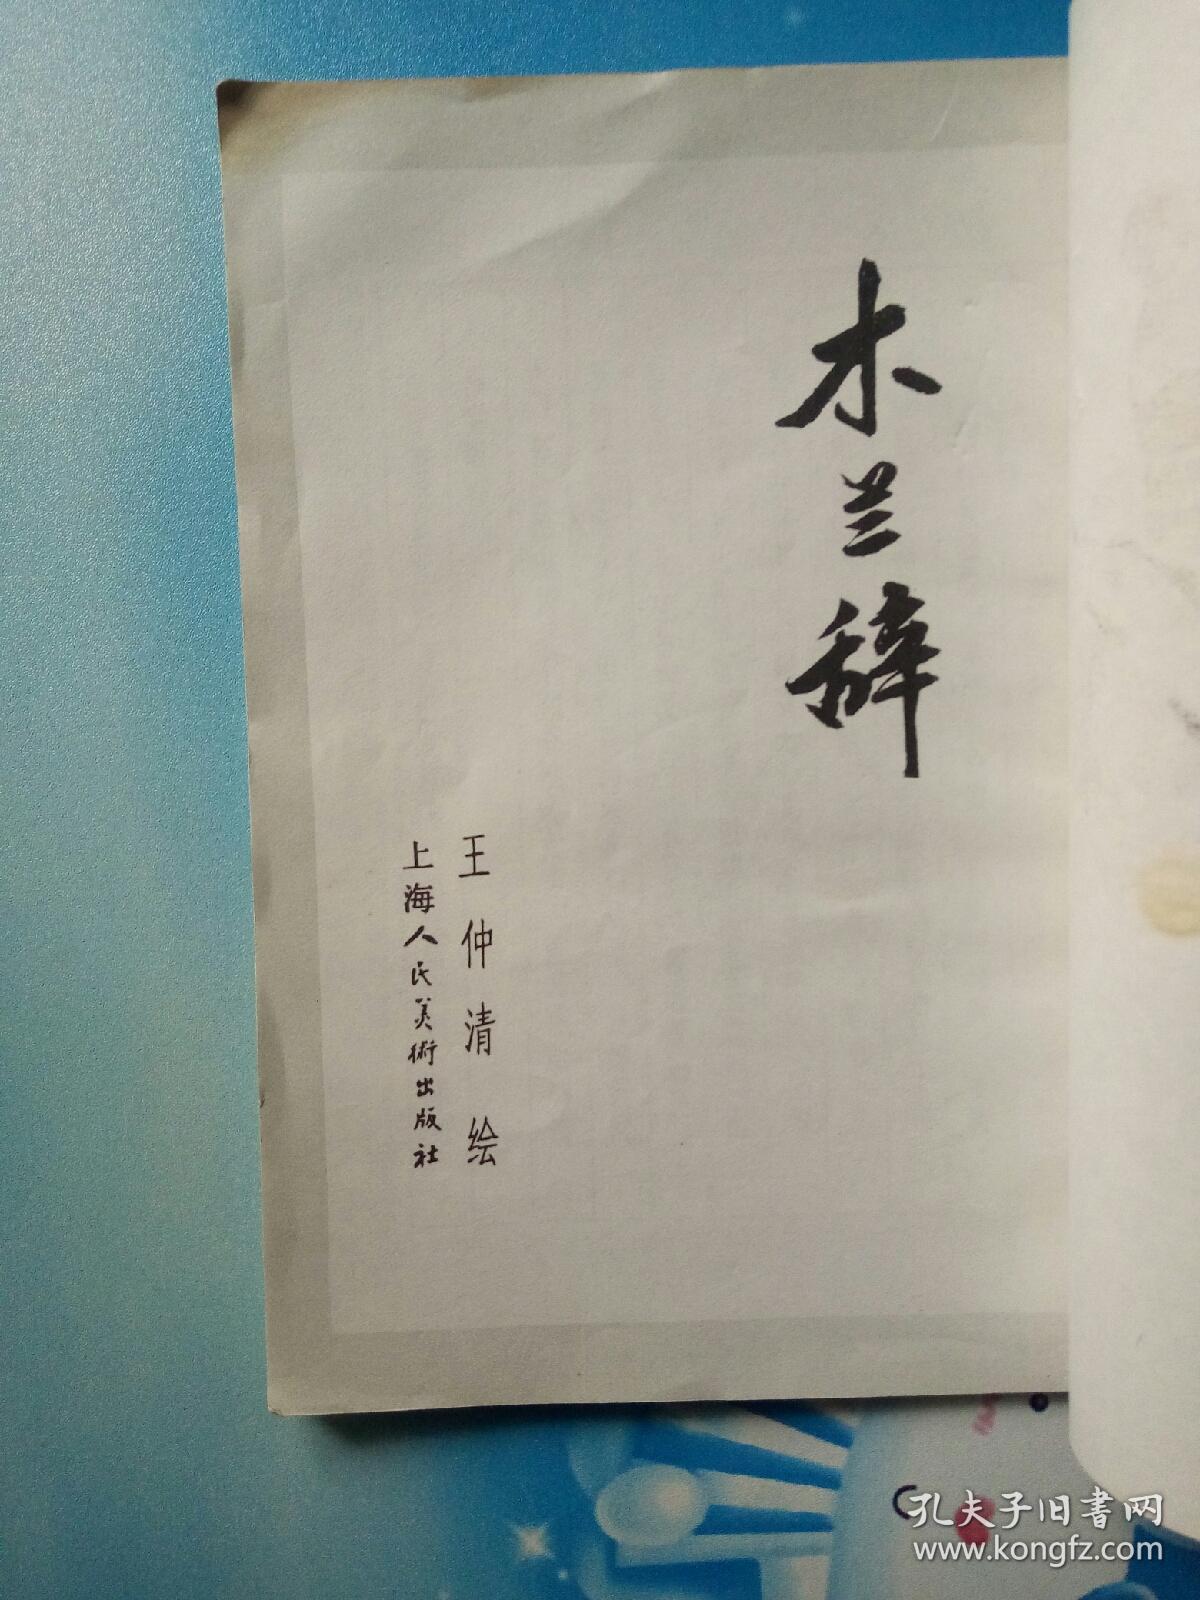 木兰辞
王仲清 绘
上海人民美術出版社
孔夫子旧書网
www.kongfz.com